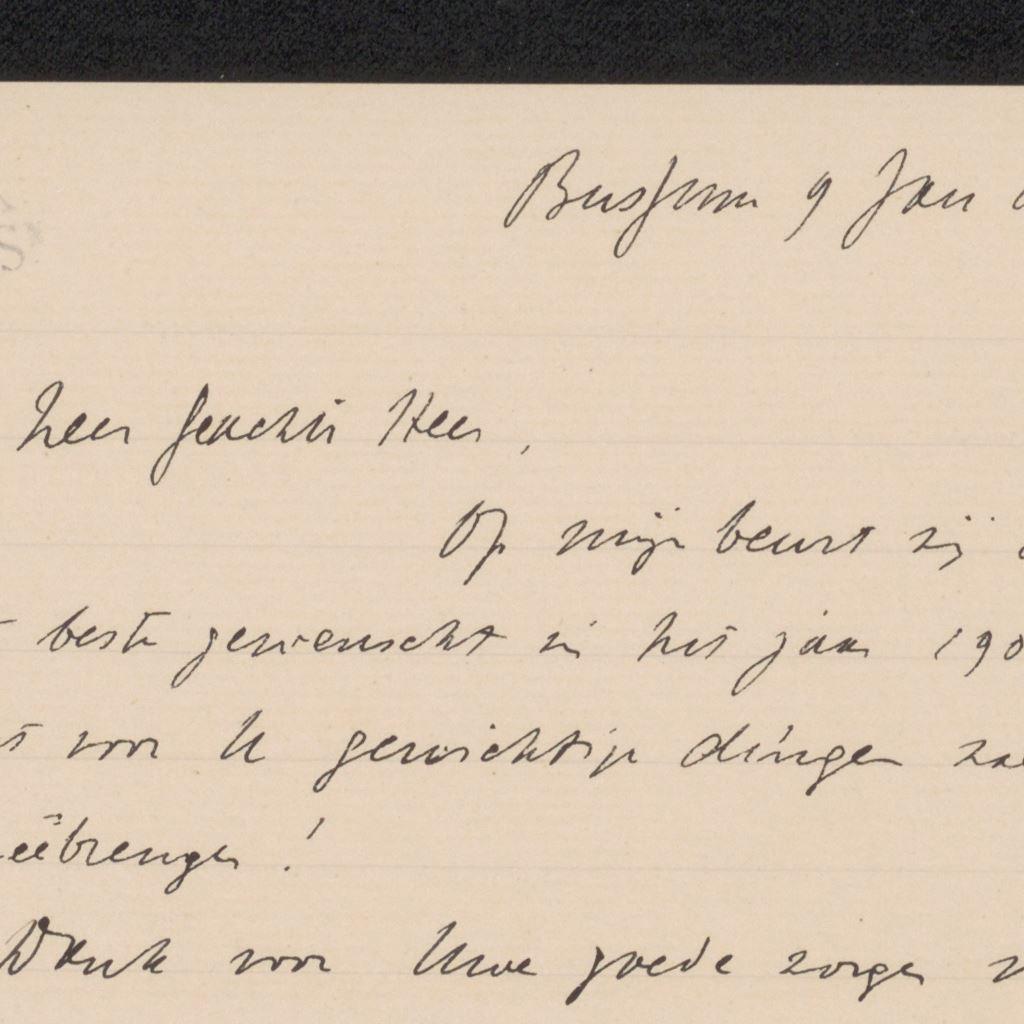 Bussum 9 Jan
Zeer Geachte Heer,
Op mijn beurt zij
beste gewenscht in het jaar 190
voor U gewichtige dingen zal
eêbrengen!
Dank voor Uwe goede zorgen